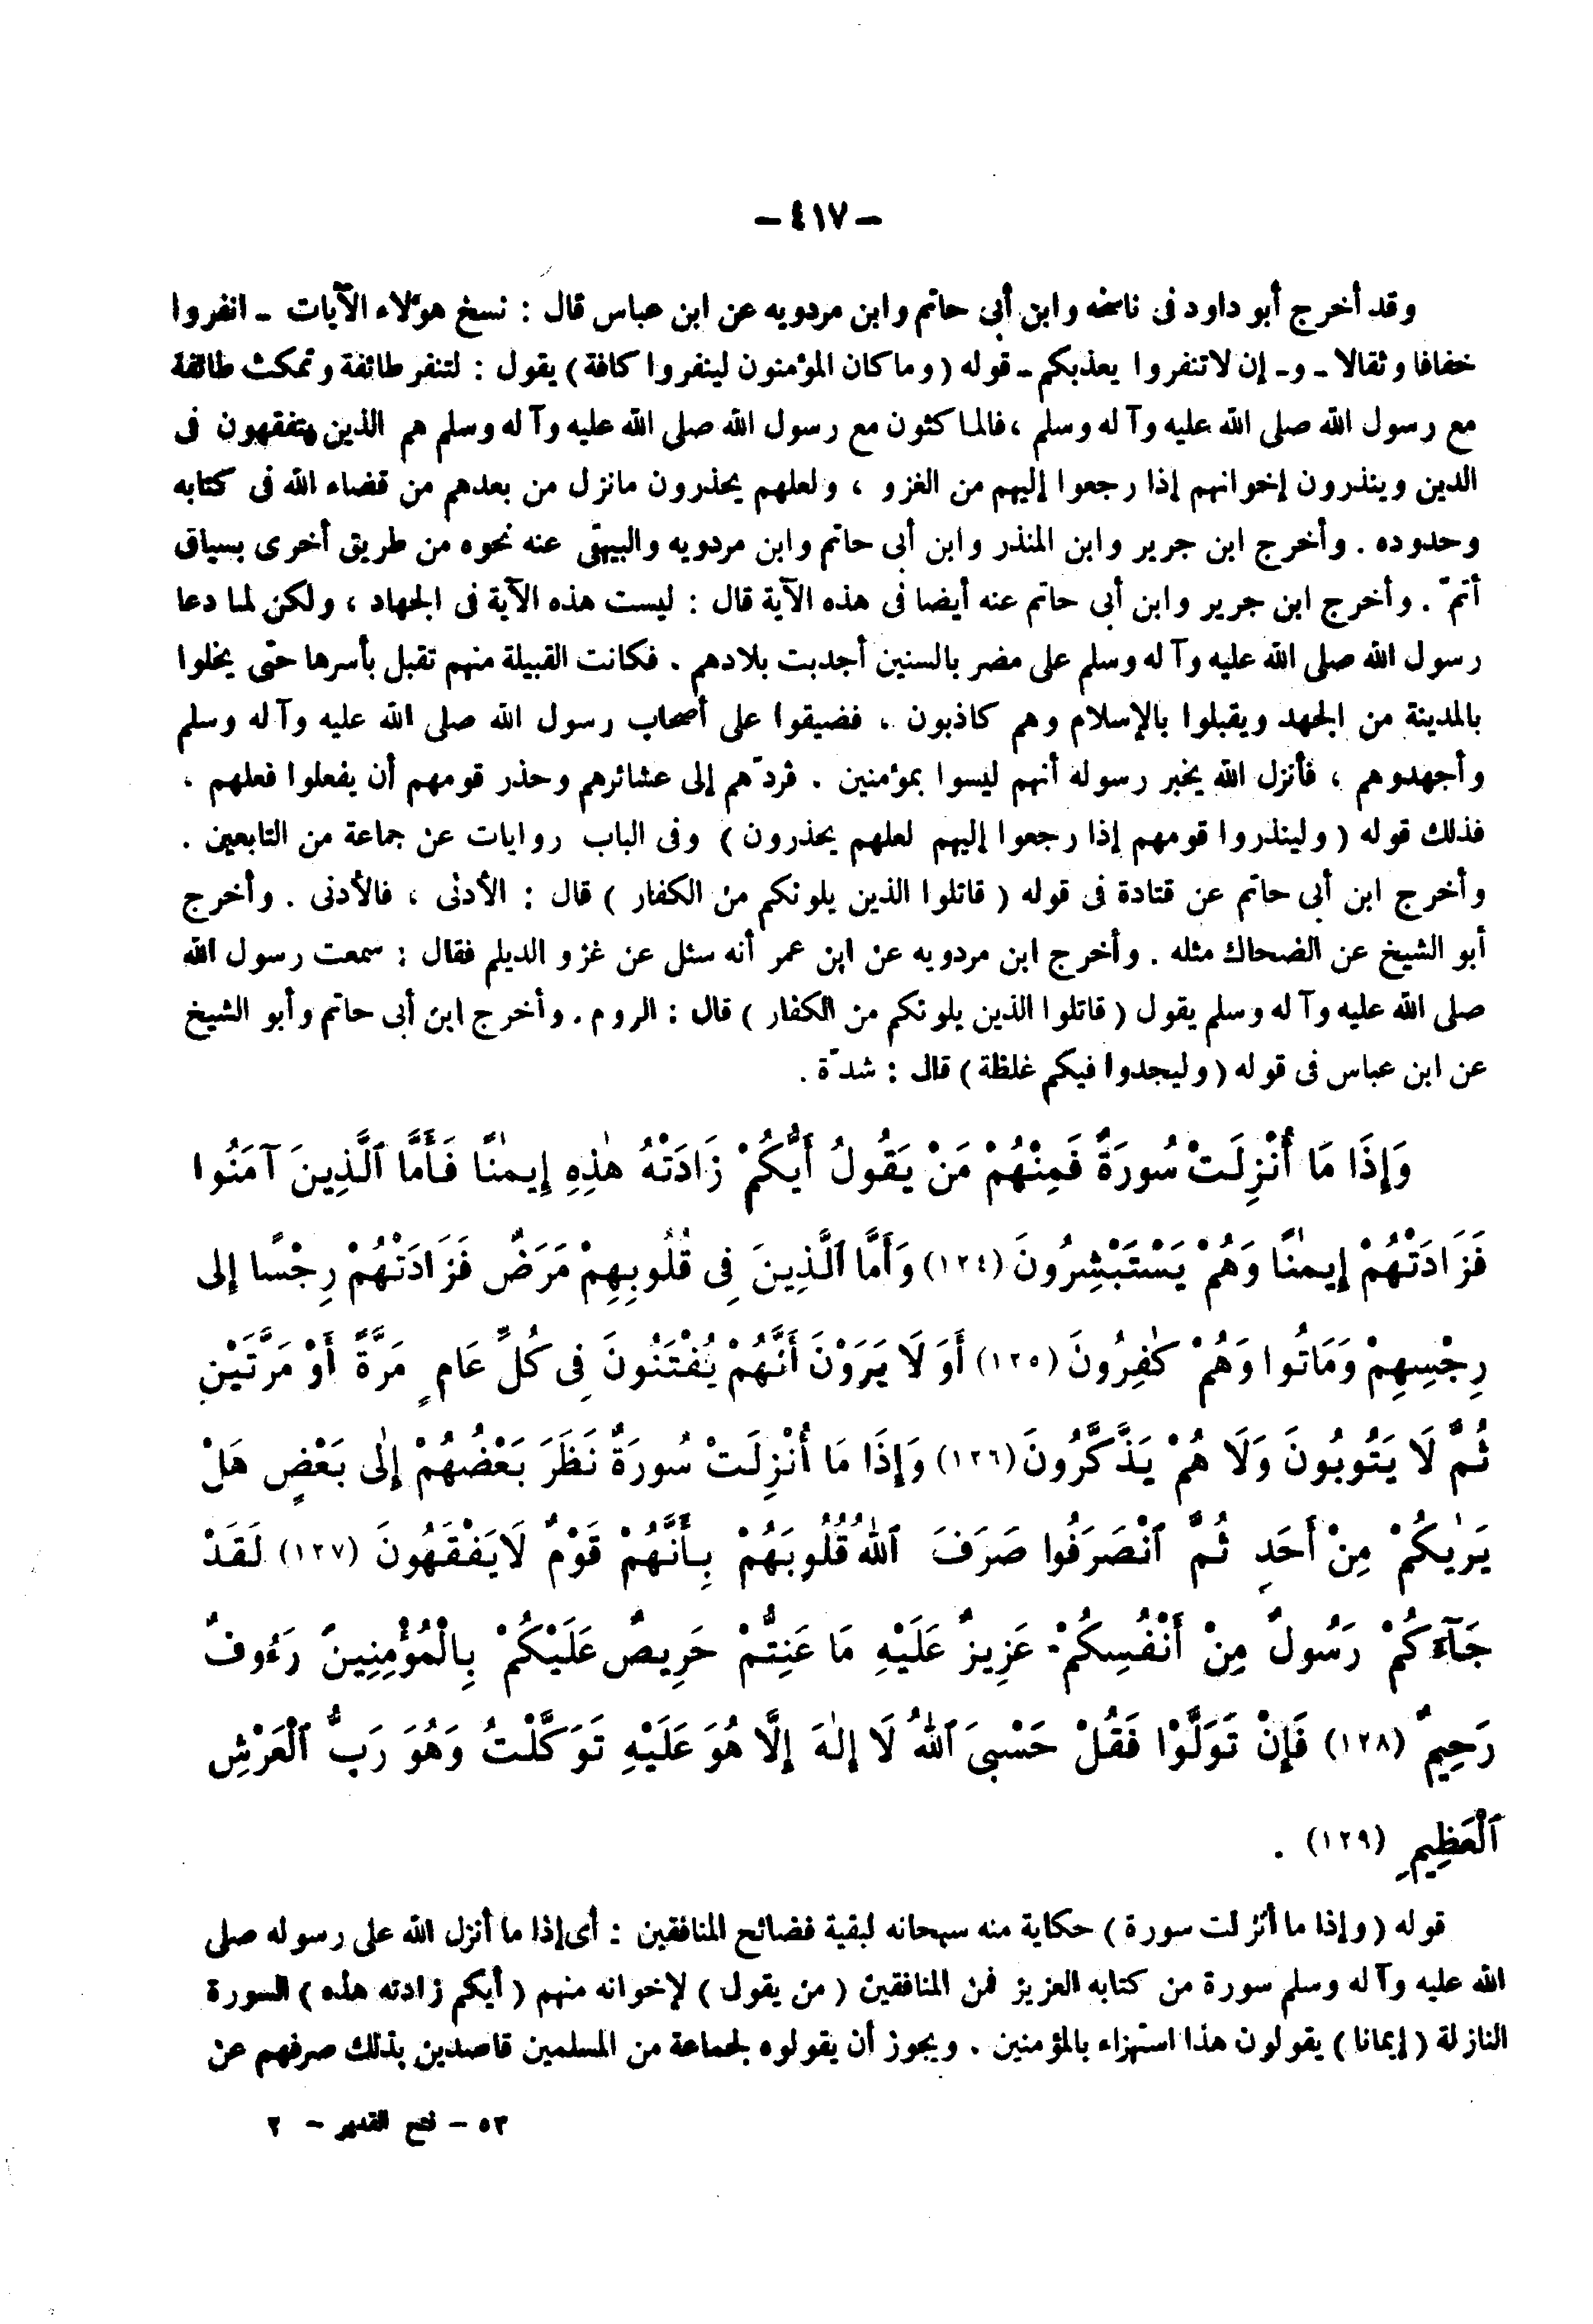 – ٤١٧ –
وقد أخرج أبو داود فى ناسخه وابن أبى حاتم وابن مردويه عن ابن عباس قال : نسخ هؤلاء الآيات - انفروا
خفافا وثقالا - و- إن لا تنفروا يعذبكم - قوله ( وما كان المؤمنون لينفروا كافة ) يقول : لتنفر طائفة وتمكث طائفة
مع رسول الله صلى الله عليه وآله وسلم ، فالماكثون مع رسول الله صلى الله عليه وآله وسلم هم الذين يتفقهون فى
الدين وينذرون إخوانهم إذا رجعوا إليهم من الغزو ، ولعلهم يحذرون مانزل من بعدهم من قضاء الله فى كتابه
وحدوده . وأخرج ابن جرير وابن المنذر وابن أبى حاتم وابن مردويه والبيهقى عنه نحوه من طريق أخرى بسياق
أتمّ . وأخرج ابن جرير وابن أبى حاتم عنه أيضا فى هذه الآية قال : ليست هذه الآية فى الجهاد ، ولكن لما دعا
رسول الله صلى الله عليه وآله وسلم على مضر بالسنين أجدبت بلادهم . فكانت القبيلة منهم تقبل بأسرها حتى يخلوا
بالمدينة من الجهد ويقبلوا بالإسلام وهم كاذبون ، فضيقوا على أصحاب رسول الله صلى الله عليه وآله وسلم
وأجهدوهم ، فأنزل الله يخبر رسوله أنهم ليسوا بمؤمنين . فردّهم إلى عشائرهم وحذر قومهم أن يفعلوا فعلهم ،
فذلك قوله ( ولينذروا قومهم إذا رجعوا إليهم لعلهم يحذرون ) وفى الباب روايات عن جماعة من التابعين .
وأخرج ابن أبى حاتم عن قتادة فى قوله ( قاتلوا الذين يلونكم من الكفار ) قال : الأدنى ، فالأدنى . وأخرج
أبو الشيخ عن الضحاك مثله . وأخرج ابن مردويه عن ابن عمر أنه سئل عن غزو الديلم فقال : سمعت رسول الله
صلى الله عليه وآله وسلم يقول ( قاتلوا الذين يلونكم من الكفار ) قال : الروم . وأخرج ابن أبى حاتم وأبو الشيخ
عن ابن عباس فى قوله ( وليجدوا فيكم غلظة ) قال : شدّة .
وَإِذَا مَا أُنْزِلَتْ سُورَةٌ فَمِنْهُمْ مَنْ يَقُولُ أَيُّكُمْ زَادَتْهُ هٰذِهِ إِيمٰنًا فَأَمَّا ٱلَّذِينَ آمَنُوا
فَزَادَتْهُمْ إِيمٰنًا وَهُمْ يَسْتَبْشِرُونَ (١٢٤) وَأَمَّا ٱلَّذِينَ فِى قُلُوبِهِمْ مَرَضٌ فَزَادَتْهُمْ رِجْسًا إلى
رِجْسِهِمْ وَمَاتُوا وَهُمْ كٰفِرُونَ (١٢٥) أَوَ لَا يَرَوْنَ أَنَّهُمْ يُفْتَنُونَ فِى كُلِّ عَامٍ مَرَّةً أَوْ مَرَّتَيْنِ
ثُمَّ لَا يَتُوبُونَ وَلَا هُمْ يَذَّكَّرُونَ (١٢٦) وَإِذَا مَا أُنْزِلَتْ سُورَةٌ نَظَرَ بَعْضُهُمْ إِلٰى بَعْضٍ هَلْ
يَرٰىكُمْ مِنْ أَحَدٍ ثُمَّ ٱنْصَرَفُوا صَرَفَ ٱللهُ قُلُوبَهُمْ بِأَنَّهُمْ قَوْمٌ لَا يَفْقَهُونَ (١٢٧) لَقَدْ
جَآءَكُمْ رَسُولٌ مِنْ أَنْفُسِكُمْ عَزِيزٌ عَلَيْهِ مَا عَنِتُّمْ حَرِيصٌ عَلَيْكُمْ بِالْمُؤْمِنِينَ رَءُوفٌ
رَحِيمٌ (١٢٨) فَإِنْ تَوَلَّوْا فَقُلْ حَسْبِىَ ٱللهُ لَا إِلٰهَ إِلَّا هُوَ عَلَيْهِ تَوَكَّلْتُ وَهُوَ رَبُّ ٱلْعَرْشِ
ٱلْعَظِيمِ (١٢٩) .
قوله ( وإذا ما أنزلت سورة ) حكاية منه سبحانه لبقية فضائح المنافقين : أى إذا ما أنزل الله على رسوله صلى
الله عليه وآله وسلم سورة من كتابه العزيز فمن المنافقين ( من يقول ) لإخوانه منهم ( أيكم زادته هذه ) السورة
النازلة ( إيمانا ) يقولون هذا استهزاء بالمؤمنين . ويجوز أن يقولوه لجماعة من المسلمين قاصدين بذلك صرفهم عن
٥٣ – فتح القدير – ٢